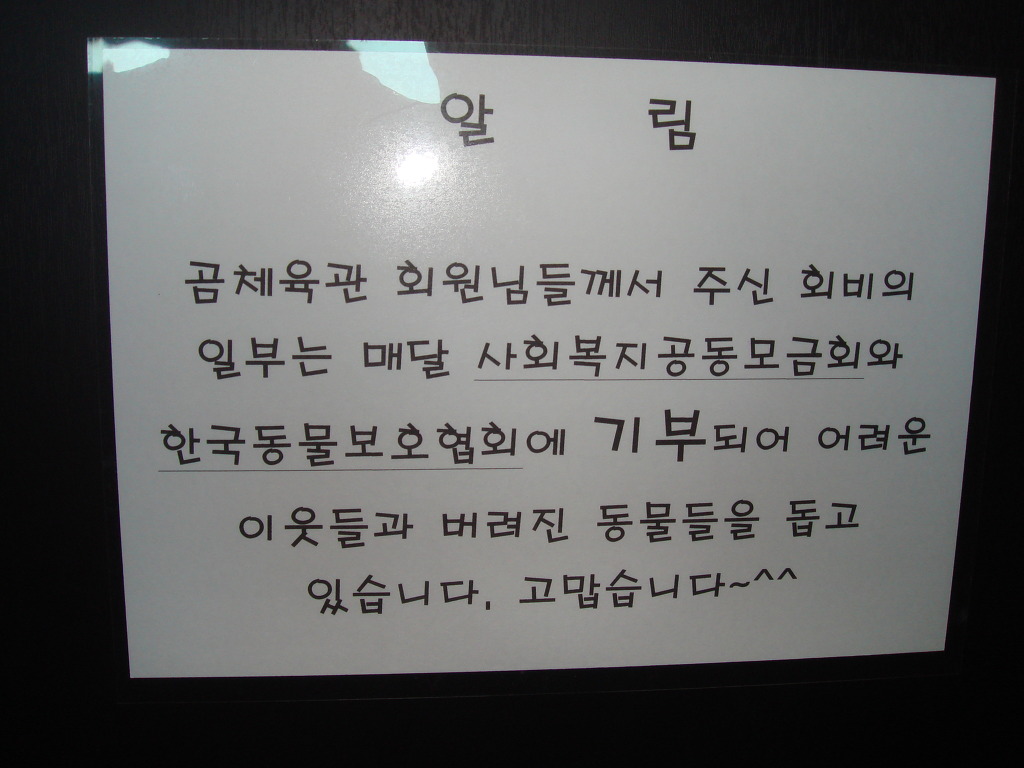 알 림
곰체육관 회원님들께서 주신 회비의
일부는 매달 사회복지공동모금회와
한국동물보호협회에 기부되어 어려운
이웃들과 버려진 동물들을 돕고
있습니다. 고맙습니다~^^